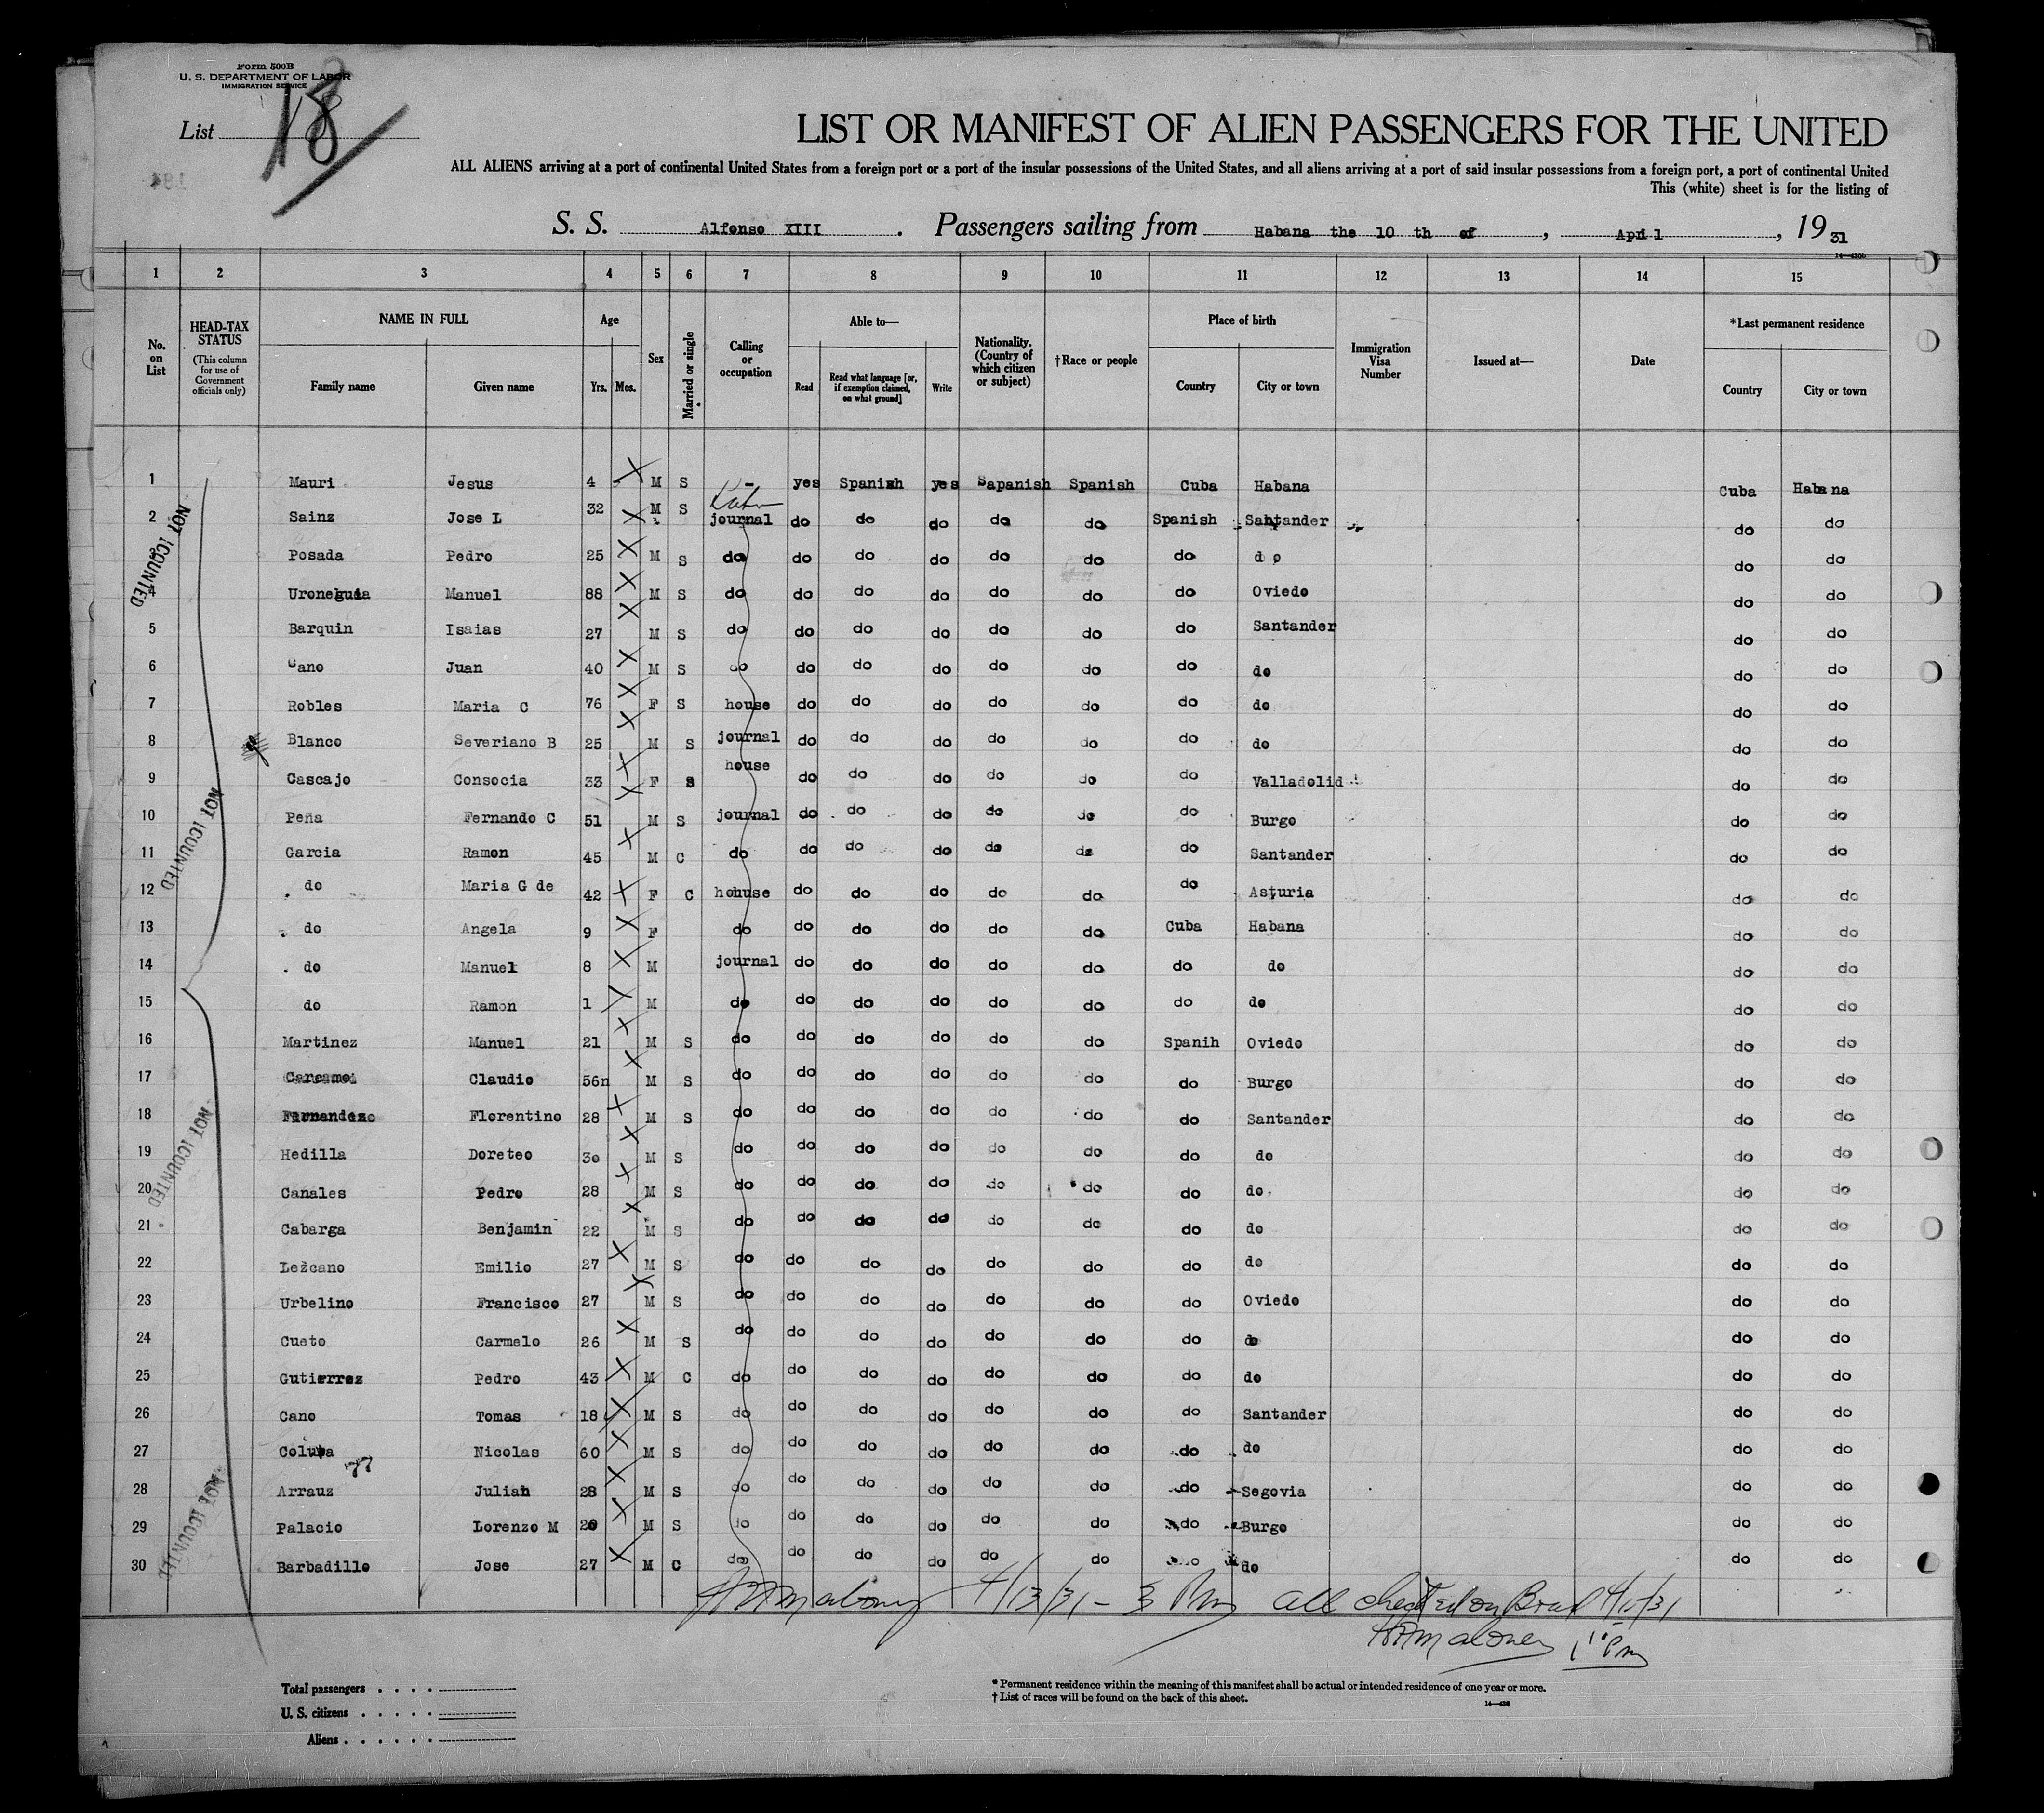 Form 500B
U. S. DEPARTMENT OF LABOR
IMMIGRATION SERVICE
List 18
LIST OR MANIFEST OF ALIEN PASSENGERS FOR THE UNITED
ALL ALIENS arriving at a port of continental United States from a foreign port or a port of the insular possessions of the United States, and all aliens arriving at a port of said insular possessions from a foreign port, a port of continental United
This (white) sheet is for the listing of
S. S. Alfonso XIII . Passengers sailing from Habana the 10 th of , April , 19 31
14—430b
1 2 3 4 5 6 7 8 9 10 11 12 13 14 15
No. on List
HEAD-TAX STATUS (This column for use of Government officials only)
NAME IN FULL Family name Given name
Age Yrs. Mos.
Sex
Married or single
Calling or occupation
Able to— Read Read what language [or, if exemption claimed, on what ground] Write
Nationality. (Country of which citizen or subject)
†Race or people
Place of birth Country City or town
Immigration Visa Number
Issued at—
Date
*Last permanent residence Country City or town
1 Mauri Jesus 4 M S - yes Spanish yes Sapanish Spanish Cuba Habana Cuba Habana
2 Sainz Jose L 32 M S journal do do do do do Spanish Santander do do
3 Posada Pedro 25 M S do do do do do do do d o do do
4 Uroneguia Manuel 88 M S do do do do do do do Oviedo do do
5 Barquin Isaias 27 M S do do do do do do do Santander do do
6 Cano Juan 40 M S do do do do do do do do do do
7 Robles Maria C 76 F S house do do do do do do do do do
8 Blanco Severiano B 25 M S journal do do do do do do do do do
9 Cascajo Consocia 33 F S house do do do do do do Valladolid do do
10 Peña Fernando C 51 M S journal do do do do do do Burgo do do
11 Garcia Ramon 45 M C do do do do do do do Santander do do
12 do Maria G de 42 F C hohuse do do do do do do Asturia do do
13 do Angela 9 F do do do do do do Cuba Habana do do
14 do Manuel 8 M journal do do do do do do do do do
15 do Ramon 1 M do do do do do do do do do do
16 Martinez Manuel 21 M S do do do do do do Spanih Oviedo do do
17 Carcamo Claudio 56n M S do do do do do do do Burgo do do
18 Fernandezo Florentino 28 M S do do do do do do do Santander do do
19 Hedilla Doreteo 30 M S do do do do do do do do do do
20 Canales Pedro 28 M S do do do do do do do do do do
21 Cabarga Benjamin 22 M S do do do do do do do do do do
22 Lezcano Emilio 27 M S do do do do do do do do do do
23 Urbelino Francisco 27 M S do do do do do do do Oviedo do do
24 Cueto Carmelo 26 M S do do do do do do do do do do
25 Gutierrez Pedro 43 M C do do do do do do do do do do
26 Cano Tomas 18 M S do do do do do do do Santander do do
27 Coluna Nicolas 60 M S do do do do do do do do do do
28 Arrauz Julian 28 M S do do do do do do do Segovia do do
29 Palacio Lorenzo M 20 M S do do do do do do do Burgo do do
30 Barbadillo Jose 27 M C do do do do do do do do do do
NOT COUNTED
NOT COUNTED
NOT COUNTED
NOT COUNTED
Maloney 4/13/31 - 3 Pm all checked on Board 4/15/31
Maloney 1 10 Pm
Total passengers . . . .
U. S. citizens . . . . .
Aliens . . . . . .
* Permanent residence within the meaning of this manifest shall be actual or intended residence of one year or more.
† List of races will be found on the back of this sheet.